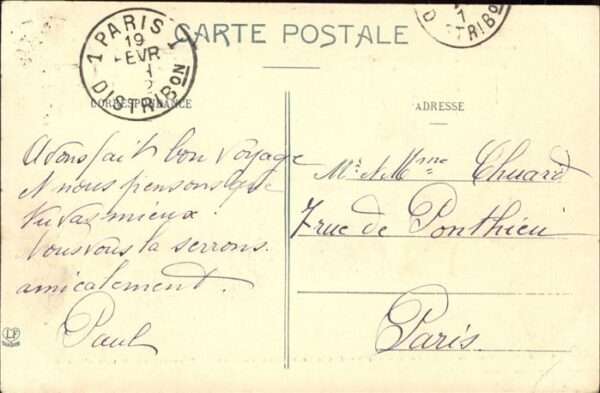 CARTE POSTALE
1 PARIS 1
19
FEVR
DISTRIBON
DISTRIBON
CORRESPONDANCE
Avons fait bon voyage
et nous pensons que
tu vas mieux.
Nous vous la serrons
amicalement.
Paul
LF
ADRESSE
Mr & Mme Chuard
7 rue de Ponthieu
Paris.